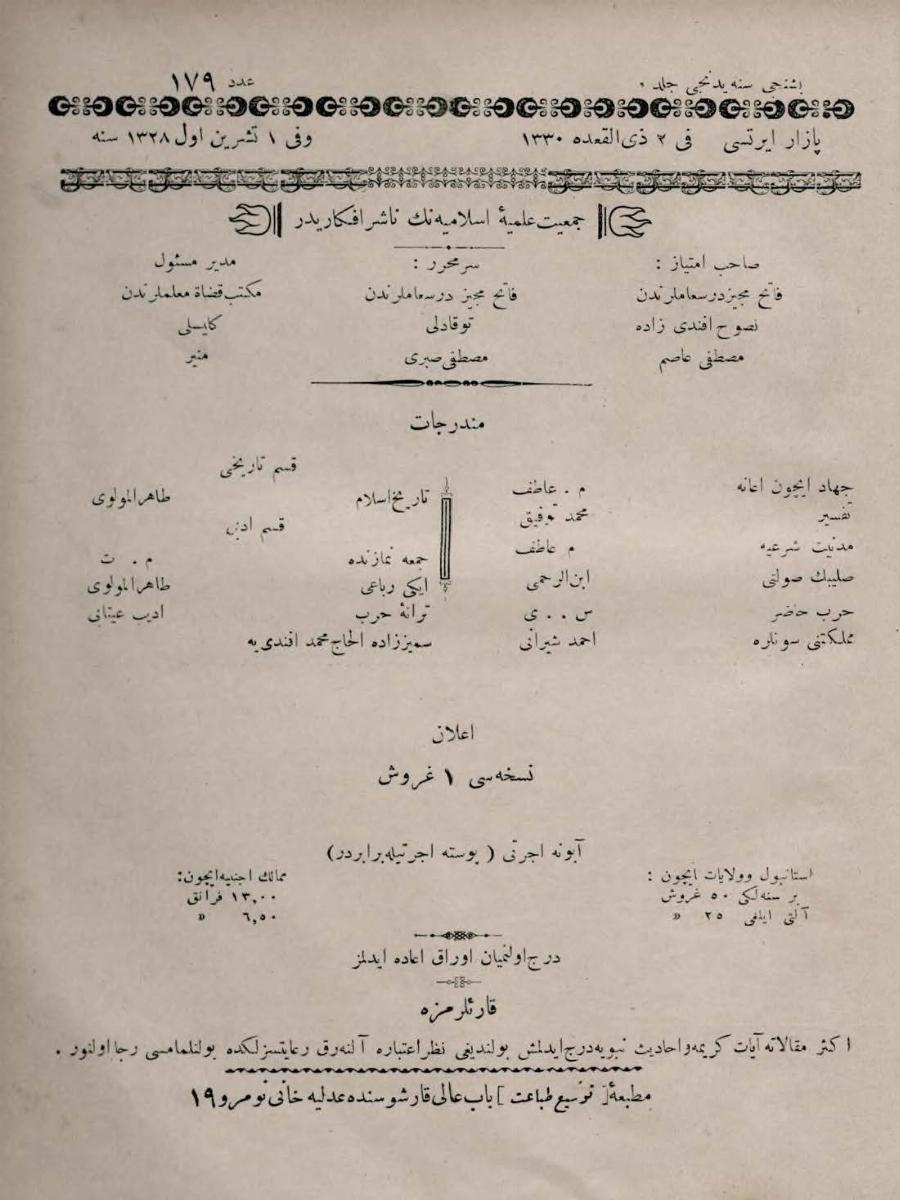 بشنجی سنه یدنجی جلد
عدد ۱۷۹
پازار ایرتسی فی ۲ ذی القعده ۱۳۳۰
وفی ۱ تشرین اول ۱۳۲۸ سنه
جمعیت علمیهٔ اسلامیه نك ناشر افكاریدر
صاحب امتیاز :
فاتح مجیز درسعاملرندن
نصوح افندی زاده
مصطفی عاصم
سر محرر :
فاتح مجیز درسعاملرندن
توقادلی
مصطفی صبری
مدیر مسئول
مكتب قضاة معلملرندن
كلیسلی
منیر
مندرجات
جهاد ایچون اعانه م . عاطف
تفسیر محمد توفیق
مدنیت شرعیه م عاطف
صلیبك صولتی ابن الرحمی
حرب حاضر س . . ی
مملكتنی سونلره احمد شیرانی
قسم تاریخی
تاریخ اسلام طاهر المولوی
قسم ادبی
جمعه نمازنده م . ت
ایكی رباعی طاهر المولوی
ترانهٔ حرب ادیب عینتابی
سمیززاده الحاج محمد افندی یه
اعلان
نسخه سی ۱ غروش
آبونه اجرتی ( پوسته اجرتیله برابردر)
استانبول وولایات ایچون :
بر سنه لكی ۵۰ غروش
آلتی ایلغی ۲۵ »
ممالك اجنبیه ایچون:
۱۳,۰۰ فرانق
۶,۵۰ »
درج اولنمیان اوراق اعاده ایدلمز
قارئلرمزه
اكثر مقالاته آیات كریمه و احادیث نبویه درج ایدلمش بولندیغی نظر اعتباره آلنه رق رعایتسزلكده بولنلمامسی رجا اولنور .
مطبعهٔ [ توسیع طباعت ] باب عالی قارشوسنده عدلیه خانی نومرو ۱۹